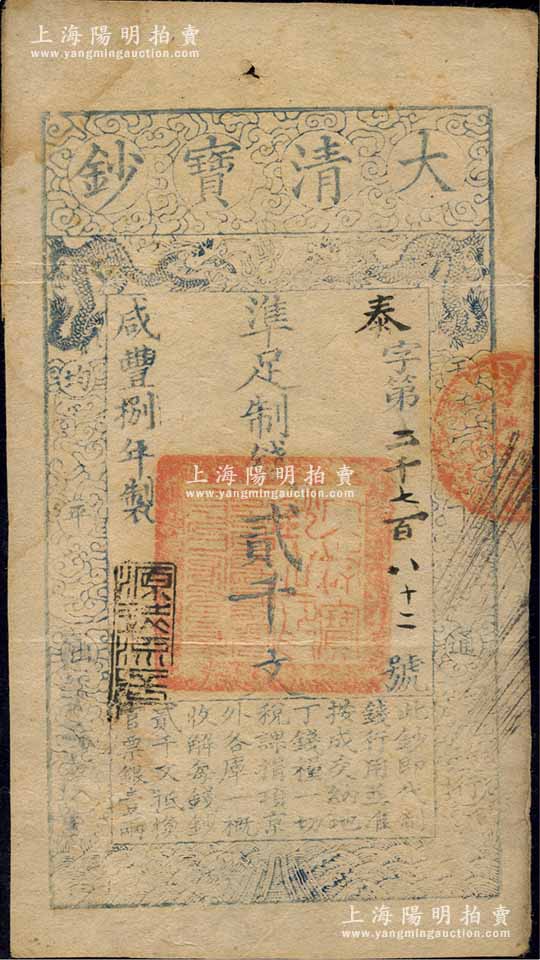 上海陽明拍賣
www.yangmingauction.com
大清寶鈔
泰字第二千七百八十二號
準足制錢貳千文
咸豐捌年製
均平
通
此鈔即代制
錢行用並准
按成交納地
丁錢糧一切
稅課捐項京
外各庫一概
收解每錢鈔
貳千文抵換
官票銀壹兩
上海陽明拍賣
www.yangmingauction.com
上海陽明拍賣
www.yangmingauction.com